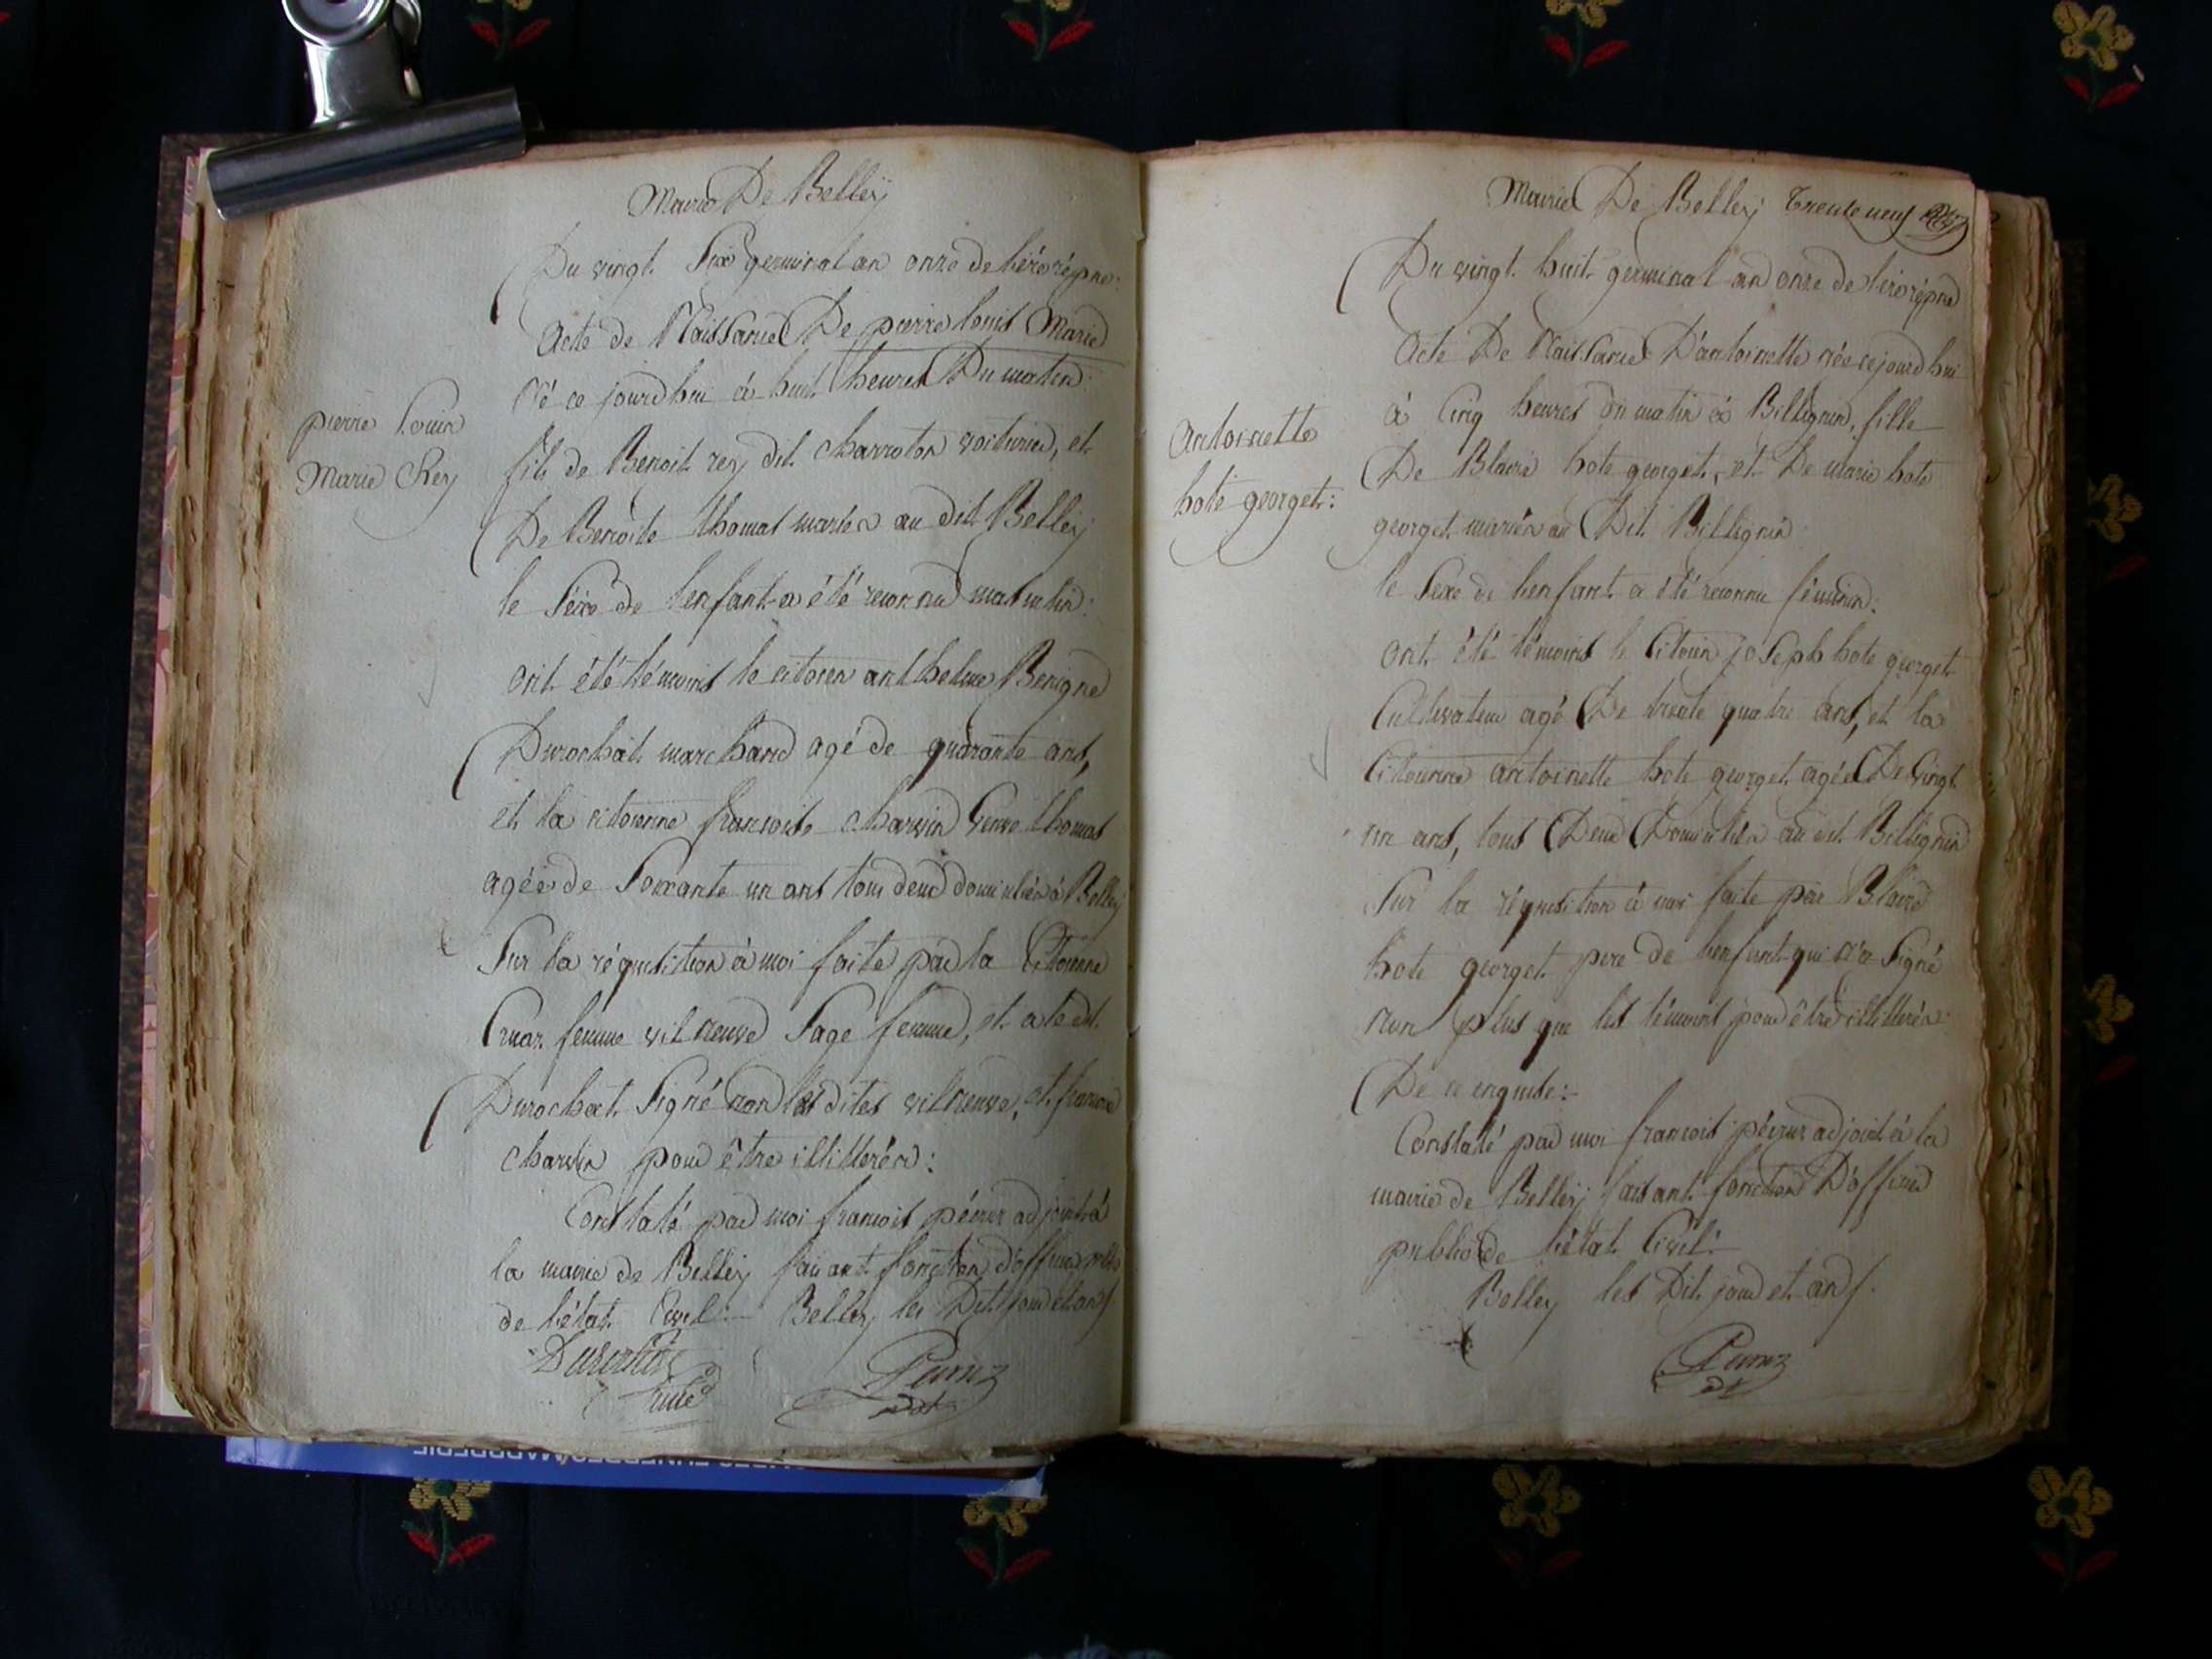 Mairie De Belley
Du vingt Six germinal an onze de l'ère répne:
Acte de Naissance De pierre louis Marie
Né ce jourdhui à huit heures Du matin
pierre Louis
Marie Rey
fils de Benoit rey dit charroton voiturier, et
De Benoite thomas mariés au dit Belley
le Séxe de lenfant a été reconnu masculin:
ont été témoins le citoien anthelme Benigne
Durochat marchand agé de quarante ans,
et la citoienne francoise charvin veuve thomas
agée de Soixante un ans tous deux domiciliés à Belley
Sur la réquisition à moi faite par la Citoienne
femme vilneuve Sage femme, et a ledit
Durochat Signé non les dites vilneuve, et francoise
charvin pour être illitterés:
Constaté par moi francois péirus adjoint à
la mairie de Belley faisant fonction d'officier
de l'état Civil:- Belley les Dit jour et an/.
Durochat
Mairie De Belley Trente neuf
Du vingt huit germinal an onze de l'ère répne
Acte De Naissance D'antoinette née cejourdhui
à Cinq heures du matin à Billignin, fille
Antoinette
hote georget:
De Blaise hote georget, et De marie hote
georget mariés au Dit Billignin
le Sexe de lenfant a été reconnu féminin:
ont été témoins le Citoien joseph hote georget
Cultivateur agé De trente quatre ans, et la
Citoienne antoinette hote georget agée De vingt
un ans, tous Deux Domiciliés au dit Billignin
Sur la réquisition à moi faite par Blaise
hote georget pere de lenfant qui n'a Signé
non plus que les témoins pour être illitterés
De ce enquis:-
Constaté par moi francois péirus adjoint à la
mairie de Belley faisant fonction D'officier
public de l'état Civil:
Belley les Dit jour et an/.